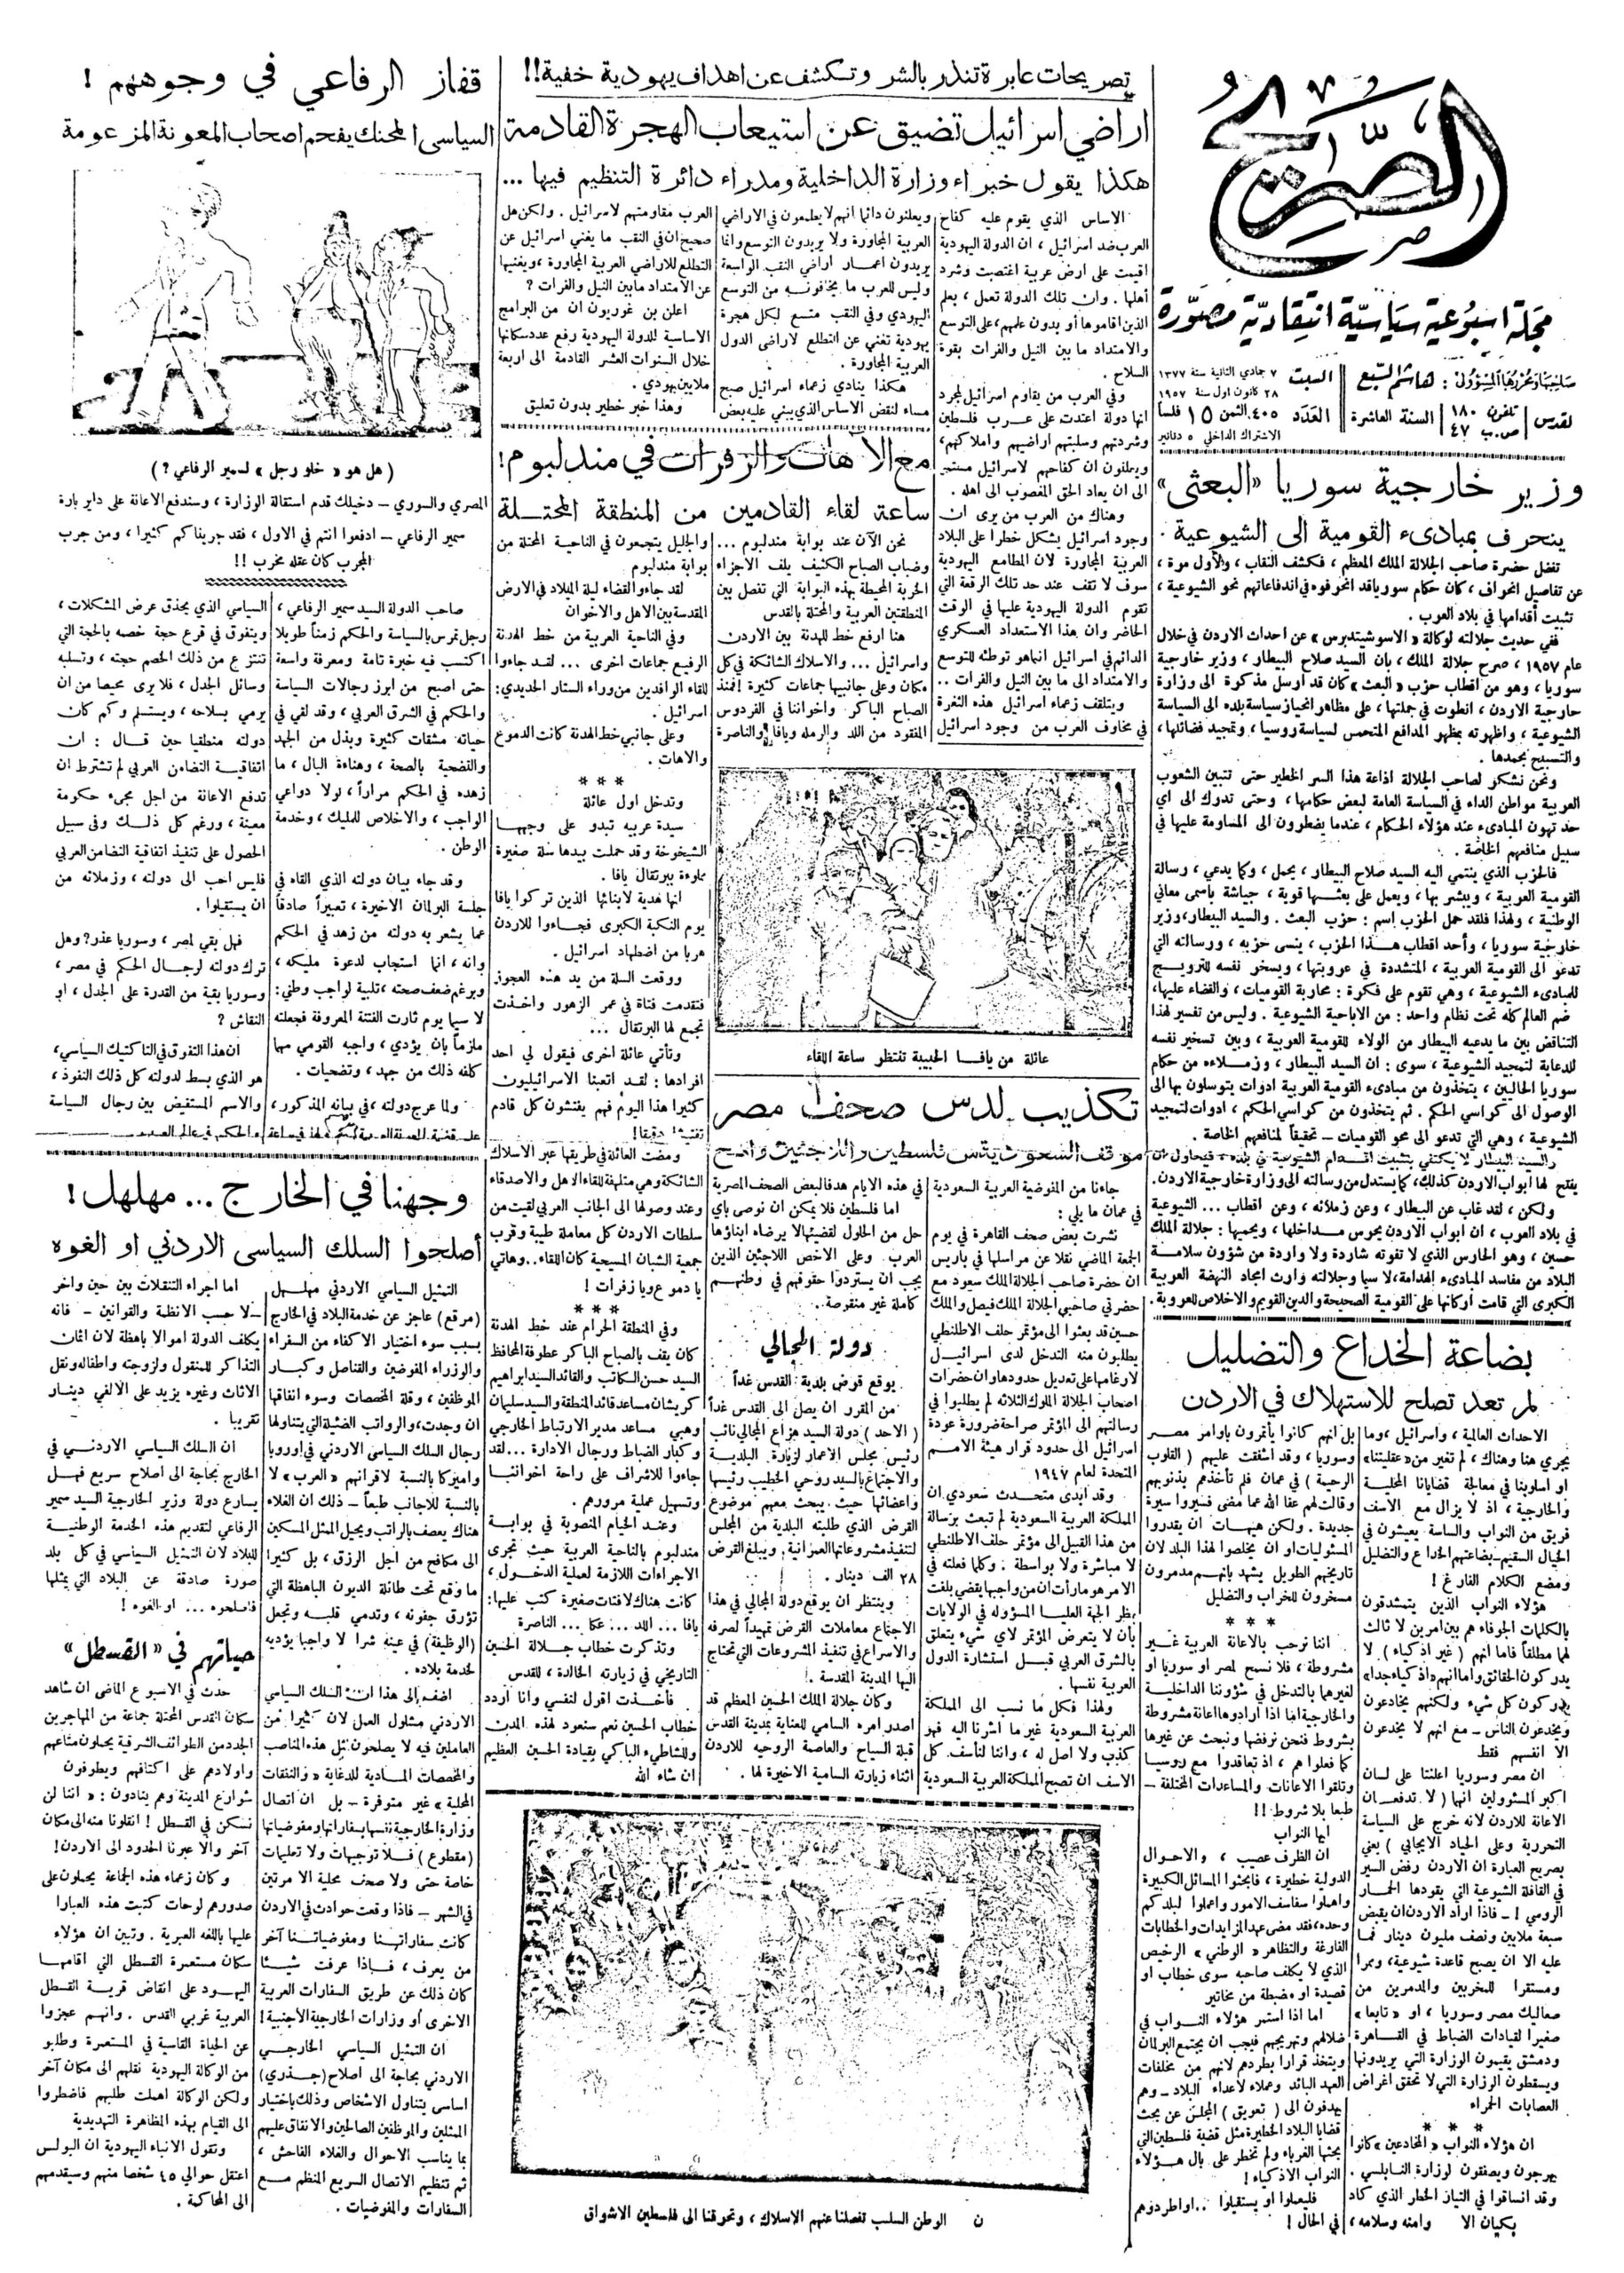 الصريح
مجلة اسبوعية سياسية انتقادية مصورة
صاحبها ومحررها المسؤول : هاشم السبع
السبت
٧ جمادي الثانية سنة ١٣٧٧
٢٨ كانون اول سنة ١٩٥٧
تلفون ١٨٠
ص.ب ٤٧
السنة العاشرة
العدد ٤٠٥ الثمن ١٥ فلساً
الاشتراك الداخلي ٥ دنانير
وزير خارجية سوريا «البعثي»
ينحرف بمبادىء القومية الى الشيوعية .
تفضل حضرة صاحب الجلالة الملك المعظم ، فكشف النقاب ، والأول مرة ،
عن تفاصيل انحراف ، كان حكام سوريا قد انحرفوه في اندفاعاتهم نحو الشيوعية ،
تثبيت أقدامها في بلاد العرب .
ففي حديث جلالته لوكالة «الاسوشيتدبرس» عن احداث الاردن في خلال
عام ١٩٥٧ ، صرح جلالة الملك ، بان السيد صلاح البيطار ، وزير خارجية
سوريا ، وهو من اقطاب حزب «البعث» كان قد أرسل مذكرة الى وزارة
خارجية الاردن ، انطوت في جملتها ، على مظاهر انحياز سياسة بلده الى السياسة
الشيوعية ، واظهرته بمظهر المدافع المتحمس لسياسة روسيا ، وتمجيد فضائلها ،
والتسبيح بحمدها .
ونحن نشكر لصاحب الجلالة اذاعة هذا السر الخطير حتى تتبين الشعوب
العربية مواطن الداء في السياسة العامة لبعض حكامها ، وحتى تدرك الى اي
حد تهون المبادىء عند هؤلاء الحكام ، عندما يضطرون الى المساومة عليها في
سبيل منافعهم الخاصة .
فالحزب الذي ينتمي اليه السيد صلاح البيطار ، يحمل ، وكما يدعي ، رسالة
القومية العربية ، ويبشر بها ، ويعمل على بعثها قوية ، جياشة باسمى معاني
الوطنية ، ولهذا فلقد حمل الحزب اسم : حزب البعث . والسيد البيطار ، وزير
خارجية سوريا ، وأحد اقطاب هذا الحزب ، ينسى حزبه ، ورسالته التي
تدعو الى القومية العربية ، المتشددة في عروبتها ، ويسخر نفسه للترويج
للمبادىء الشيوعية ، وهي تقوم على فكرة : محاربة القوميات ، والقضاء عليها ،
ضم العالم كله تحت نظام واحد : من الاباحية الشيوعية . وليس من تفسير لهذا
التناقض بين ما يدعيه البيطار من الولاء للقومية العربية ، وبين تسخير نفسه
للدعاية لتمجيد الشيوعية ، سوى : ان السيد البيطار ، وزملاءه من حكام
سوريا الحاليين ، يتخذون من مبادىء القومية العربية ادوات يتوسلون بها الى
الوصول الى كراسي الحكم . ثم يتخذون من كراسي الحكم ، ادوات لتمجيد
الشيوعية ، وهي التي تدعو الى محو القوميات – تحقيقاً لمنافعهم الخاصة .
والسيد البيطار لا يكتفي بتثبيت اقدام الشيوعية في بلده ، فيحاول ان
يفتح لها أبواب الاردن كذلك ، كما يستدل من رسالته الى وزارة خارجية الاردن .
ولكن ، لقد غاب عن البيطار ، وعن زملائه ، وعن اقطاب ... الشيوعية
في بلاد العرب ، ان ابواب الاردن يحرس مداخلها ، ويحميها : جلالة الملك
حسين ، وهو الحارس الذي لا تفوته شاردة ولا واردة من شؤون سلامة
البلاد من مفاسد المبادىء الهدامة ، لا سيما وجلالته وارث امجاد النهضة العربية
الكبرى التي قامت أركانها على القومية الصحيحة والدين القويم والاخلاص للعروبة .
بضاعة الخداع والتضليل
لم تعد تصلح للاستهلاك في الاردن
الاحداث العالمية ، واسرائيل ، وما
يجري هنا وهناك ، لم تغير من «عقليتنا»
او اسلوبنا في معالجة قضايانا المحلية
والخارجية ، اذ لا يزال مع الاسف
فريق من النواب والساسة يعيشون في
الخيال السقيم – بضاعتهم الخداع والتضليل
ومضغ الكلام الفارغ !
هؤلاء النواب الذين يتمشدقون
بالكلمات الجوفاء هم بين امرين لا ثالث
لهما مطلقاً فاما انهم ( غير اذكياء ) لا
يدركون الحقائق واما انهم «اذكياء جدا»
يدركون كل شيء ولكنهم يخادعون
ويخدعون الناس – مع انهم لا يخدعون
الا انفسهم فقط
ان مصر وسوريا اعلنتا على لسان
اكبر المسئولين انهما ( لا تدفعان
الاعانة للاردن لانه خرج على السياسة
التحررية وعلى الحياد الايجابي ) يعني
بصريح العبارة ان الاردن رفض السير
في القافلة الشيوعية التي يقودها الحمار
الرومي ! – فاذا اراد الاردن ان يقبض
سبعة ملايين ونصف مليون دينار فما
عليه الا ان يصبح قاعدة شيوعية ، وممرا
ومستقرا للمخربين والمدمرين من
صعاليك مصر وسوريا ، او « تابعا »
صغيرا لقيادات الضباط في القاهرة
ودمشق يقيمون الوزارة التي يريدونها
ويسقطون الوزارة التي لا تحقق اغراض
العصابات الحمراء
* * *
ان هؤلاء النواب « المخادعين » كانوا
يهرجون ويصفقون لوزارة النابلسي .
وقد انساقوا في التيار الخطر الذي كاد
بكيان الا وامنه وسلامه ،
بل انهم كانوا يأتمرون باوامر مصر
وسوريا ، وقد اشفقت عليهم ( القلوب
الرحيمة ) في عمان فلم تأخذهم بذنوبهم
وقالت لهم عفا الله عما مضى فسيروا سيرة
جديدة . ولكن هيهات ان يقدروا
المسئوليات او ان يخلصوا لهذا البلد لان
تاريخهم الطويل يشهد بانهم مدمرون
مسخرون للخراب والتضليل
* * *
اننا نرحب بالاعانة العربية غير
مشروطة ، فلا نسمح لمصر او سوريا او
لغيرهما بالتدخل في شؤوننا الداخلية
والخارجية اما اذا ارادوها اعانة مشروطة
بشروط فنحن نرفضها ونبحث عن غيرها
كما فعلوا هم ، اذ تعاقدوا مع روسيا
وتلقوا الاعانات والمساعدات المختلفة –
طبعا بلا شروط !!
ايها النواب
ان الظرف عصيب ، والاحوال
الدولية خطيرة ، فابحثوا المسائل الكبيرة
واهملوا سفاسف الامور واعملوا لبلدكم
وحده ، فقد مضى عهد المزايدات والخطابات
الفارغة والتظاهر « الوطني » الرخيص
الذي لا يكلف صاحبه سوى خطاب او
قصيدة او مضبطة من مخاتير
اما اذا استمر هؤلاء النواب في
ضلالهم وتهريجهم فيجب ان يجتمع البرلمان
ويتخذ قرارا بطردهم لانهم من مخلفات
العهد البائد وعملاء لاعداء البلاد – وهم
يهدفون الى ( تعويق ) المجلس عن بحث
قضايا البلاد الخطيرة مثل قضية فلسطين التي
بحثها الغرباء ولم تخطر على بال هؤلاء
النواب الاذكياء !
فليعملوا او يستقيلوا .. او اطردوهم
في الحال !
تصريحات عابرة تنذر بالشر وتكشف عن اهداف يهودية خفية !!
اراضي اسرائيل تضيق عن استيعاب الهجرة القادمة
هكذا يقول خبراء وزارة الداخلية ومدراء دائرة التنظيم فيها ...
الاساس الذي يقوم عليه كفاح
العرب ضد اسرائيل ، ان الدولة اليهودية
اقيمت على ارض عربية اغتصبت وشرد
أهلها . وان تلك الدولة تعمل ، يعلم
الذين اقاموها أو بدون علمهم ، على التوسع
والامتداد ما بين النيل والفرات بقوة
السلاح .
وفي العرب من يقاوم اسرائيل لمجرد
انها دولة اعتدت على عرب فلسطين
وشردتهم وسلبتهم اراضيهم واملاكهم ،
ويعلنون ان كفاحهم لاسرائيل مستمر
الى ان يعاد الحق المغصوب الى اهله .
وهناك من العرب من يرى ان
وجود اسرائيل يشكل خطرا على البلاد
العربية المجاورة لان المطامع اليهودية
سوف لا تقف عند حد تلك الرقعة التي
تقوم الدولة اليهودية عليها في الوقت
الحاضر وان هذا الاستعداد العسكري
الدائم في اسرائيل انما هو توطئة للتوسع
والامتداد الى ما بين النيل والفرات ..
ويتلقف زعماء اسرائيل هذه الثغرة
في مخاوف العرب من وجود اسرائيل
ويعلنون دائما انهم لا يطمعون في الاراضي
العربية المجاورة ولا يريدون التوسع وانما
يريدون اعمار اراضي النقب الواسعة
وليس للعرب ما يخافونه من التوسع
اليهودي وفي النقب متسع لكل هجرة
يهودية تغني عن التطلع لاراضي الدول
العربية المجاورة .
هكذا ينادي زعماء اسرائيل صبح
مساء لنقض الاساس الذي يبني عليه بعض
العرب مقاومتهم لاسرائيل . ولكن هل
صحيح ان في النقب ما يغني اسرائيل عن
التطلع للاراضي العربية المجاورة ، ويغنيها
عن الامتداد ما بين النيل والفرات ؟
اعلن بن غوريون ان من البرامج
الاساسية للدولة اليهودية رفع عدد سكانها
خلال السنوات العشر القادمة الى اربعة
ملايين يهودي .
وهذا خبر خطير بدون تعليق
مع الآهات والزفرات في مندلبوم !
ساعة لقاء القادمين من المنطقة المحتلة
نحن الآن عند بوابة مندلبوم ...
وضباب الصباح الكثيف يلف الاجزاء
الحربة المحيطة بهذه البوابة التي تفصل بين
المنطقتين العربية والمحتلة بالقدس
هنا ارفع خط للهدنة بين الاردن
واسرائيل ... والاسلاك الشائكة في كل
مكان وعلى جانبيها جماعات كثيرة ! فمنذ
الصباح الباكر واخواننا في الفردوس
المفقود من اللد والرمله ويافا والناصرة
والجليل يتجمعون في الناحية المحتلة من
بوابة مندلبوم
لقد جاءوا لقضاء ليلة الميلاد في الارض
المقدسة بين الاهل والاخوان
وفي الناحية العربية من خط الهدنة
الرفيع جماعات اخرى ... لقد جاءوا
للقاء الوافدين من وراء الستار الحديدي :
اسرائيل .
وعلى جانبي خط الهدنة كانت الدموع
والاهات .
* * *
وتدخل اول عائلة
سيدة عربية تبدو على وجهها
الشيخوخة وقد حملت بيدها سلة صغيرة
مملوءة ببرتقال يافا .
انها هدية لابنائها الذين تركوا يافا
يوم النكبة الكبرى فجاءوا للاردن
هربا من اضطهاد اسرائيل .
ووقعت السلة من يد هذه العجوز
فتقدمت فتاة في عمر الزهور واخذت
تجمع لها البرتقال ...
وتأتي عائلة اخرى فيقول لي احد
افرادها : لقد اتعبنا الاسرائيليون
كثيرا هذا اليوم فهم يفتشون كل قادم
تفتيشا دقيقا !
ومضت العائلة في طريقها عبر الاسلاك
الشائكة وهي متلهفة للقاء الاهل والاصدقاء
وعند وصولها الى الجانب العربي لقيت من
سلطات الاردن كل معاملة طيبة وقرب
جمعية الشبان المسيحية كان اللقاء .. وهاتي
يا دموع ويا زفرات !
* * *
وفي المنطقة الحرام عند خط الهدنة
كان يقف بالصباح الباكر عطوفة المحافظ
السيد حسن الكاتب والقائد السيد ابراهيم
كريشان مساعد قائد المنطقة والسيد سليمان
وهبي مساعد مدير الارتباط الخارجي
وكبار الضباط ورجال الادارة ... لقد
جاءوا للاشراف على راحة اخواننا
وتسهيل عملية مرورهم .
وعند الخيام المنصوبة في بوابة
مندلبوم بالناحية العربية حيث تجري
الاجراءات اللازمة لعملية الدخول ،
كانت هناك لافتات صغيرة كتب عليها :
يافا ... اللد ... عكا ... الناصرة
وتذكرت خطاب جلالة الحسين
التاريخي في زيارته الخالدة ، للقدس
فأخذت اقول لنفسي وانا اردد
خطاب الحسين نعم سنعود لهذه المدن
وللشاطيء الباكي بقيادة الحسين العظيم
ان شاء الله
عائلة من يافا الحبيبة تنتظر ساعة اللقاء
تكذيب لدس صحف مصر
موقف السعودية من فلسطين واللاجئين واضح
جاءنا من المفوضية العربية السعودية
في عمان ما يلي :
نشرت بعض صحف القاهرة في يوم
الجمعة الماضي نقلا عن مراسلها في باريس
ان حضرة صاحب الجلالة الملك سعود مع
حضرتي صاحبي الجلالة الملك فيصل والملك
حسين قد بعثوا الى مؤتمر حلف الاطلنطي
يطلبون منه التدخل لدى اسرائيل
لارغامها على تعديل حدودها وان حضرات
اصحاب الجلالة الملوك الثلاثة لم يطلبوا في
رسالتهم الى المؤتمر صراحة ضرورة عودة
اسرائيل الى حدود قرار هيئة الامم
المتحدة لعام ١٩٤٧
وقد ابدى متحدث سعودي ان
المملكة العربية السعودية لم تبعث برسالة
من هذا القبيل الى مؤتمر حلف الاطلنطي
لا مباشرة ولا بواسطة . وكلما فعلته في
الامر هو ما رأت ان من واجبها يقضي بلفت
نظر الجهة العليا المسؤولة في الولايات
بأن لا يتعرض المؤتمر لاي شيء يتعلق
بالشرق العربي قبل استشارة الدول
العربية نفسها .
ولهذا فكل ما نسب الى المملكة
العربية السعودية غير ما اشرنا اليه فهو
كذب ولا اصل له ، واننا لنأسف كل
الاسف ان تصبح المملكة العربية السعودية
في هذه الايام هدفا لبعض الصحف المصرية
اما فلسطين فلا يمكن ان نوصى باي
حل من الحلول لقضيتها لا يرضاه ابناؤها
العرب . وعلى الاخص اللاجئين الذين
يجب ان يستردوا حقوقهم في وطنهم
كاملة غير منقوصة .
دولة المجالي
يوقع قرض بلدية القدس غداً
من المقرر ان يصل الى القدس غداً
( الاحد ) دولة السيد هزاع المجالي نائب
رئيس مجلس الاعمار لزيارة البلدية
والاجتماع بالسيد روحي الخطيب رئيسها
واعضائها حيث يبحث معهم موضوع
القرض الذي طلبته البلدية من المجلس
لتنفيذ مشروعاتها العمرانية ويبلغ القرض
٢٨ الف دينار .
وينتظر ان يوقع دولة المجالي في هذا
الاجتماع معاملات القرض تمهيداً لصرفه
والاسراع في تنفيذ المشروعات التي تحتاج
اليها المدينة المقدسة .
وكان جلالة الملك الحسين المعظم قد
اصدر امره السامي للعناية بمدينة القدس
قبلة السياح والعاصمة الروحية للاردن
اثناء زيارته السامية الاخيرة لها .
ن الوطن السلب تفصلنا عنهم الاسلاك ، وتحرقنا الى فلسطين الاشواق
قفاز الرفاعي في وجوههم !
السياسي المحنك يفحم اصحاب المعونة المزعومة
( هل هو « خلو وجل » لسمير الرفاعي ؟ )
المصري والسوري – دخيلك قدم استقالة الوزارة ، وسندفع الاعانة على داير بارة
سمير الرفاعي – ادفعوا انتم في الاول ، فقد جربناكم كثيرا ، ومن جرب
المجرب كان عقله مخرب !!
صاحب الدولة السيد سمير الرفاعي ،
رجل تمرس بالسياسة والحكم زمناً طويلا
اكتسب فيه خبرة تامة ومعرفة واسعة
حتى اصبح من ابرز رجالات السياسة
والحكم في الشرق العربي ، وقد لقي في
حياته مشقات كثيرة وبذل من الجهد
والتضحية بالصحة ، وهناءة البال ، ما
زهده في الحكم مراراً ، لولا دواعي
الواجب ، والاخلاص للمليك ، وخدمة
الوطن .
وقد جاء بيان دولته الذي القاه في
جلسة البرلمان الاخيرة ، تعبيراً صادقاً
عما يشعر به دولته من زهد في الحكم
وانه ، انما استجاب لدعوة مليكه ،
وبرغم ضعف صحته ، تلبية لواجب وطني :
لا سيما يوم ثارت الفتنة المعروفة فجعلته
ملزماً بان يؤدي ، واجبه القومي مهما
كلفه ذلك من جهد ، وتضحيات .
ولما عرج دولته ، في بيانه المذكور ،
السياسي الذي يحذق عرض المشكلات ،
ويتفوق في قرع حجة خصمه بالحجة التي
تنتزع من ذلك الخصم حجته ، وتسلبه
وسائل الجدل ، فلا يرى محيصا من ان
يرمي بسلاحه ، ويستلم وكم كان
دولته منطقيا حين قال : ان
اتفاقية التضامن العربي لم تشترط ان
تدفع الاعانة من اجل مجيء حكومة
معينة ، ورغم كل ذلك وفي سبيل
الحصول على تنفيذ اتفاقية التضامن العربي
فليس احب الى دولته ، وزملائه من
ان يستقيلوا .
فهل بقي لمصر ، وسوريا عذر ؟ وهل
ترك دولته لرجال الحكم في مصر ،
وسوريا بقية من القدرة على الجدل ، او
النقاش ؟
ان هذا التفوق في التاكتيك السياسي ،
هو الذي بسط لدولته كل ذلك النفوذ ،
والاسم المستفيض بين رجال السياسة
وجهنا في الخارج ... مهلهل !
أصلحوا السلك السياسي الاردني او الغوه
التمثيل السياسي الاردني مهلهل
(مرقع) عاجز عن خدمة البلاد في الخارج
بسبب سوء اختيار الاكفاء من السفراء
والوزراء المفوضين والقناصل وكبار
الموظفين ، وقلة المخصصات وسوء انفاقها
ان وجدت ، والرواتب الضئيلة التي يتناولها
رجال السلك السياسي الاردني في اوروبا
واميركا بالنسبة لاقرانهم «العرب» لا
بالنسبة للاجانب طبعاً – ذلك ان الغلاء
هناك يعصف بالراتب ويحيل الممثل المسكين
الى مكافح من اجل الرزق ، بل كثيرا
ما وقع تحت طائلة الديون الباهظة التي
تؤرق جفونه ، وتدمي قلبه وتجعل
(الوظيفة) في عينه شرا لا واجبا يؤديه
لخدمة بلاده .
اضف الى هذا ان السلك السياسي
الاردني مشلول العمل لان كثيرا من
العاملين فيه لا يصلحون لمثل هذه المناصب
والمخصصات المادية للدعاية «والنفقات
المحلية » غير متوفرة – بل ان اتصال
وزارة الخارجية نفسها بسفاراتها ومفوضياتها
(مقطوع) فلا توجيهات ولا تعليمات
خاصة حتى ولا صحف محلية الا مرتين
في الشهر – فاذا وقعت حوادث في الاردن
كانت سفاراتنا ومفوضياتنا آخر
من يعرف ، فاذا عرفت شيئا
كان ذلك عن طريق السفارات العربية
الاخرى أو وزارات الخارجية الأجنبية !
ان التمثيل السياسي الخارجي
الاردني بحاجة الى أصلاح (جذري)
اساسي يتناول الاشخاص وذلك باختيار
الممثلين والموظفين الصالحين والانفاق عليهم
بما يناسب الاحوال والغلاء الفاحش ،
ثم تنظيم الاتصال السريع المنظم مع
السفارات والمفوضيات .
اما اجراء التنقلات بين حين واخر
– لا حسب الانظمة والقوانين – فانه
يكلف الدولة اموالا باهظة لان اثمان
التذاكر للمنقول ولزوجته واطفاله ونقل
الاثاث وغيره يزيد على الالفي دينار
تقريبا .
ان السلك السياسي الاردني في
الخارج بحاجة الى اصلاح سريع فهل
يسارع دولة وزير الخارجية السيد سمير
الرفاعي لتقديم هذه الخدمة الوطنية
للبلاد لان التمثيل السياسي في كل بلد
صورة صادقة عن البلاد التي يمثلها
فاصلحوه ... او الغوه !
حياتهم في « القسطل »
حدث في الاسبوع الماضي ان شاهد
سكان القدس المحتلة جماعة من المهاجرين
الجدد من الطوائف الشرقية يحملون متاعهم
واولادهم على اكتافهم ويطوفون
شوارع المدينة وهم ينادون : « اننا لن
نسكن في القسطل ! انقلونا منه الى مكان
آخر والا عبرنا الحدود الى الاردن !
وكان زعماء هذه الجماعة يحملون على
صدورهم لوحات كتبت هذه العبارا
عليها باللغه العبرية . وتبين ان هؤلاء
سكان مستعمرة القسطل التي اقامها
اليهود على انقاض قرية القسطل
العربية غربي القدس . وانهم عجزوا
عن الحياة القاسية في المستعمرة وطلبو
من الوكالة اليهودية نقلهم الى مكان آخر
ولكن الوكالة اهملت طلبهم فاضطروا
الى القيام بهذه المظاهرة التهديدية
وتقول الانباء اليهودية ان البوليس
اعتقل حوالي ٤٥ شخصا منهم وسيقدمهم
الى المحاكمة .